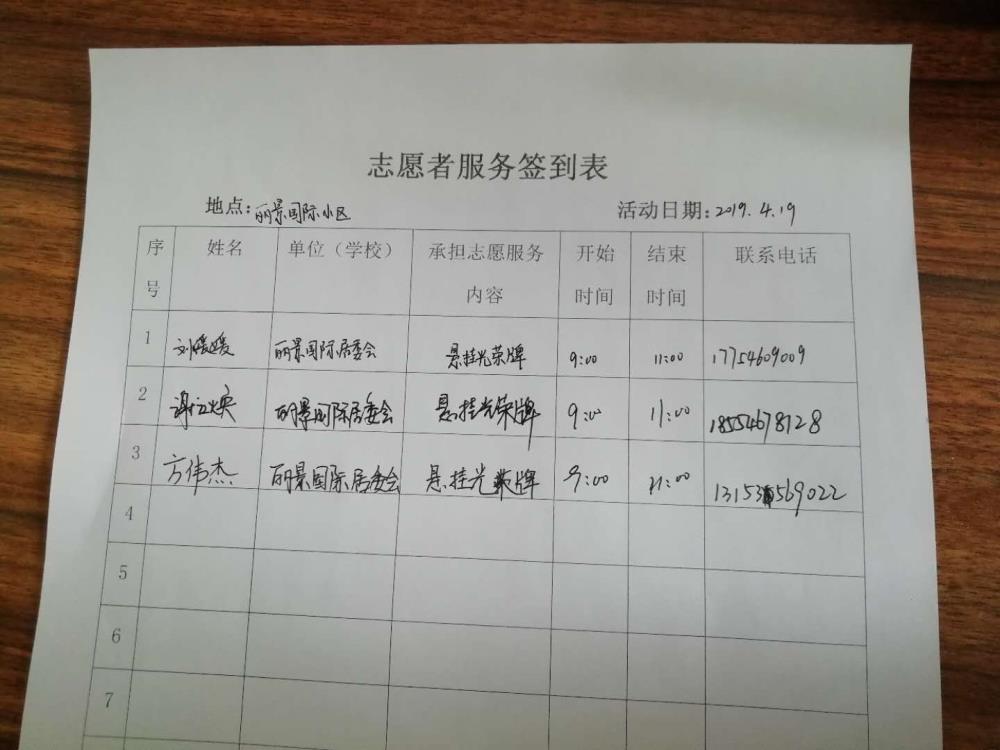 志愿者服务签到表
地点:丽景国际小区 活动日期:2019.4.19
序号 姓名 单位（学校） 承担志愿服务内容 开始时间 结束时间 联系电话
1 刘媛媛 丽景国际居委会 悬挂光荣牌 9:00 11:00 17754609009
2 丽景国际居委会 悬挂光荣牌 9:00 11:00 18554678128
3 方伟杰 丽景国际居委会 悬挂光荣牌 9:00 11:00
4
5
6
7